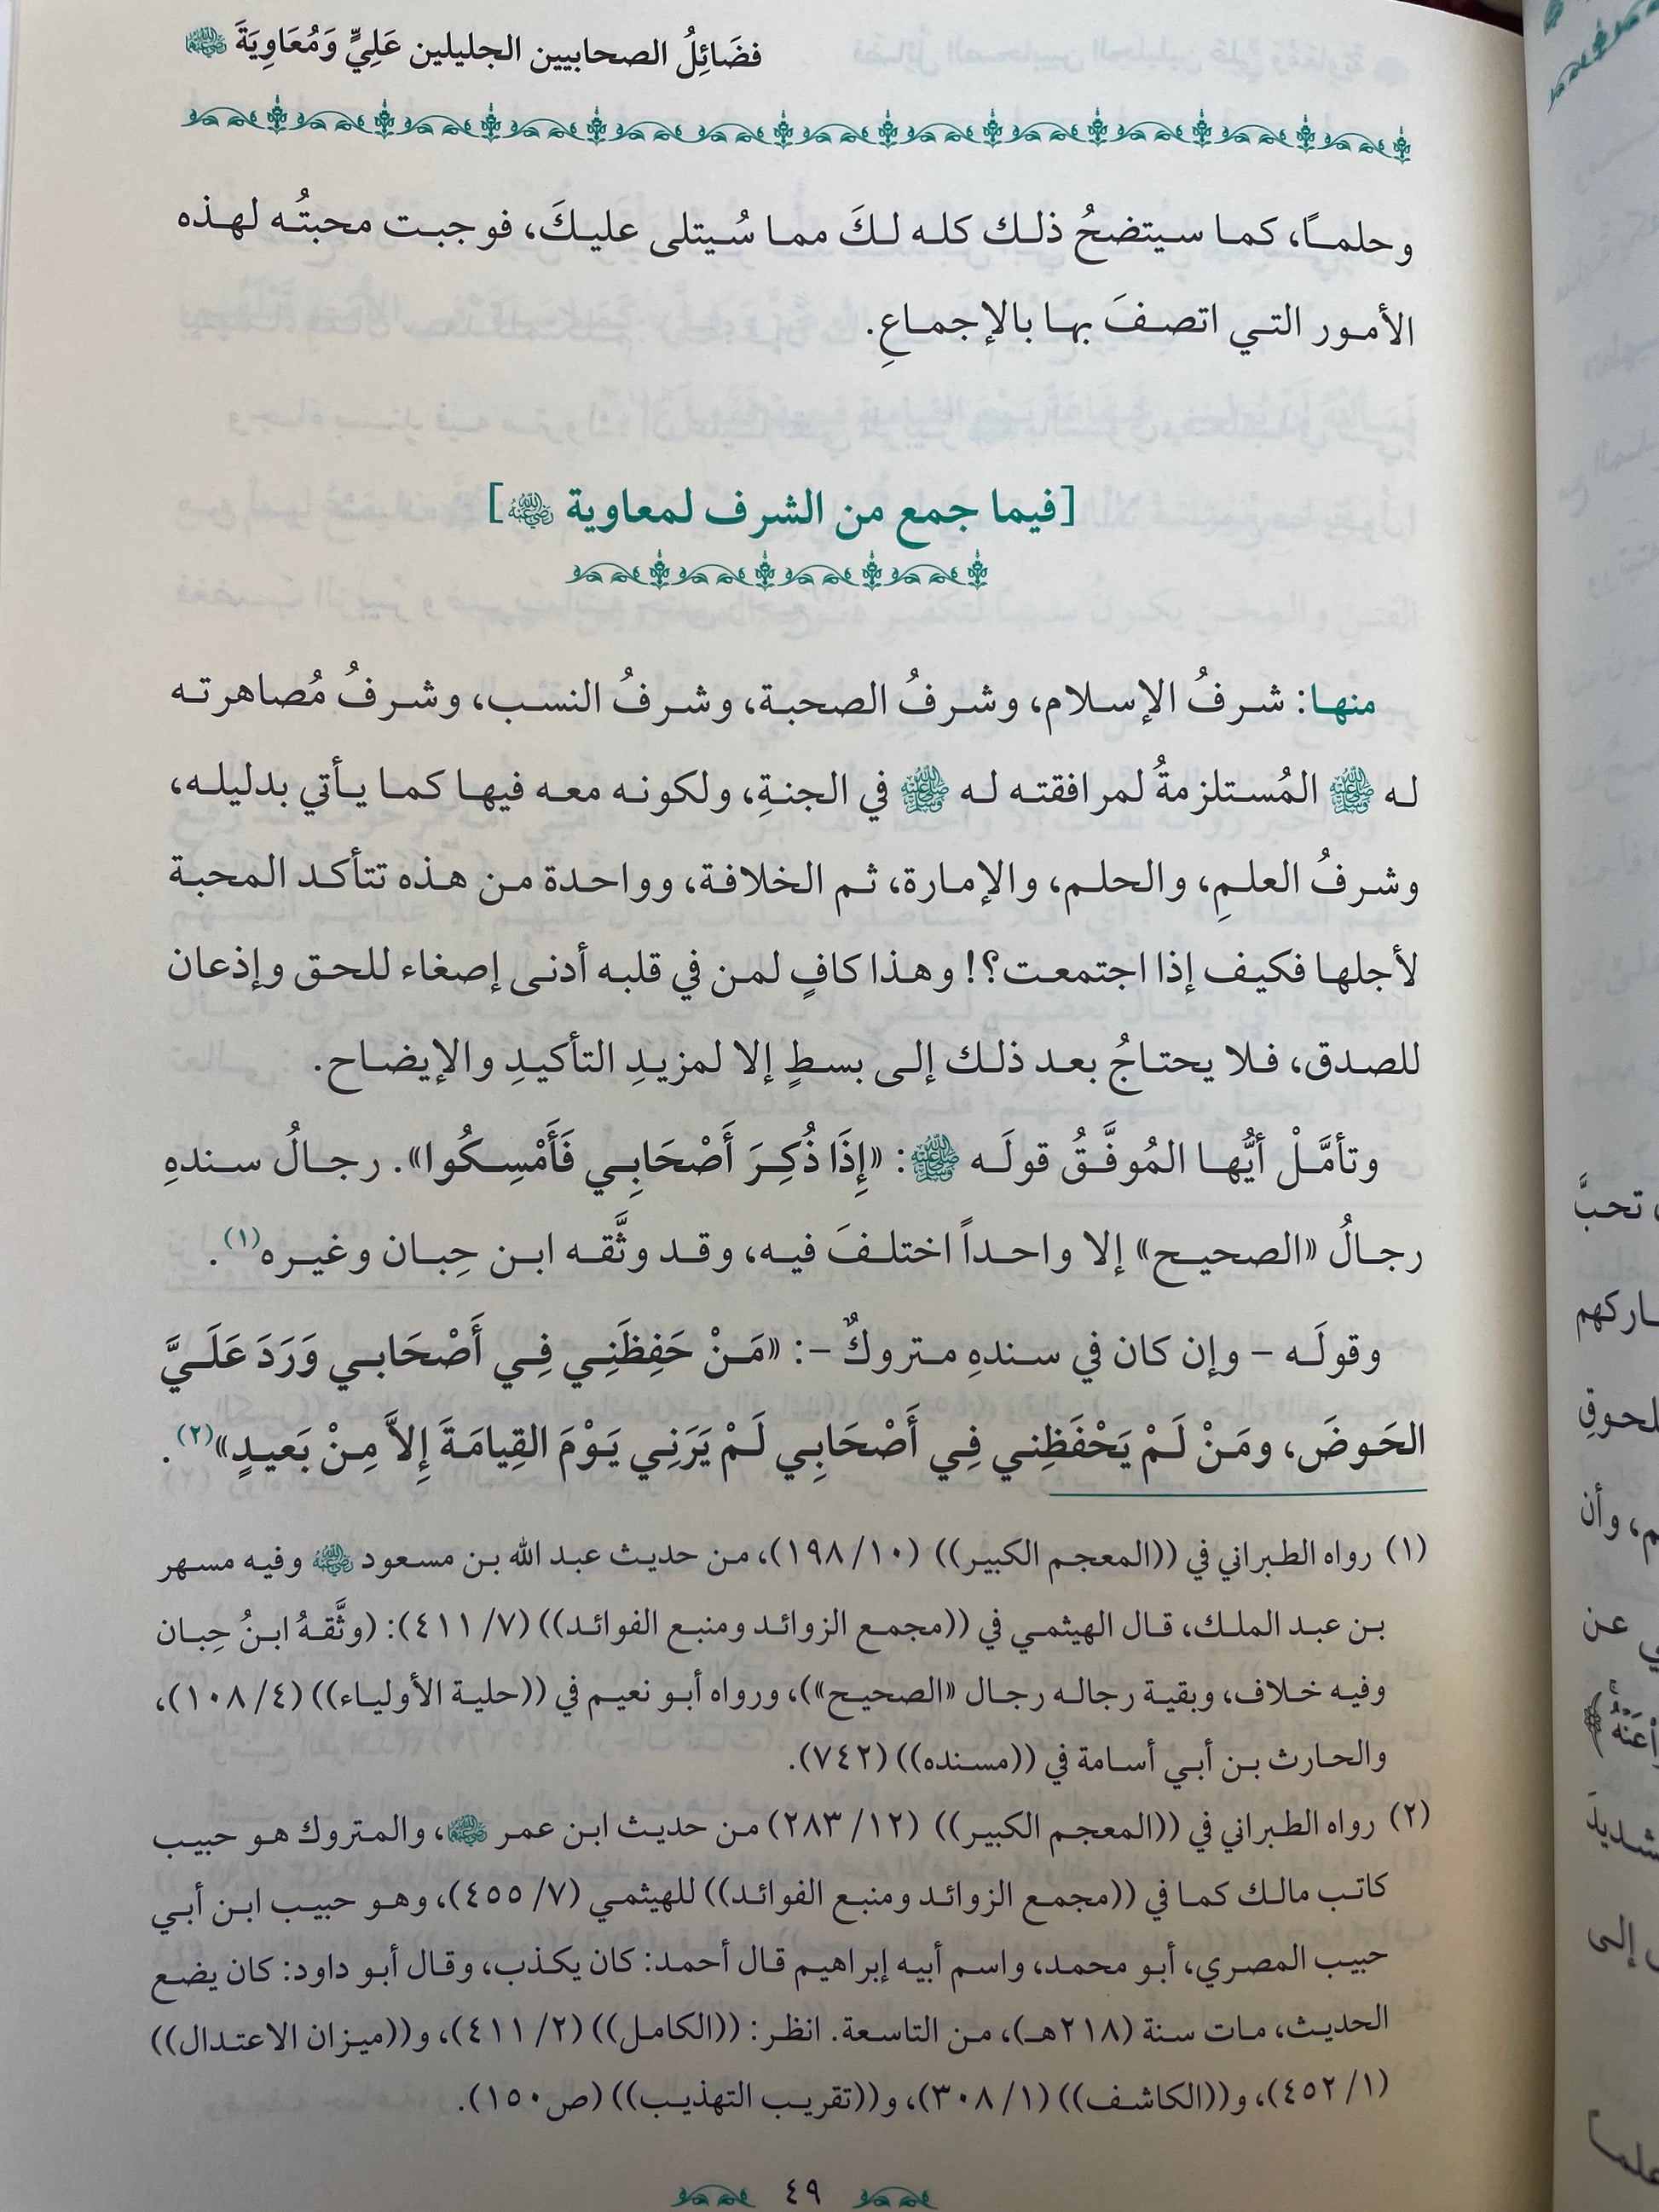 فضَائِلُ الصحابيين الجليلين عَلِيٍّ وَمُعَاوِيَةَ رضي الله عنهما
وحلمـاً، كمـا سـيتضحُ ذلـك كلـه لـكَ ممـا سُـيتلى عليـكَ، فوجبـت محبتُـه لهـذه
الأمـور التـي اتصـفَ بهـا بالإجمـاعِ.
[فيما جمع من الشرف لمعاوية رضي الله عنه]
منهـا: شـرفُ الإسـلام، وشـرفُ الصحبـة، وشـرفُ النسـب، وشـرفُ مُصاهرتـه
لـه ﷺ المُسـتلزمةُ لمرافقتـه لـه ﷺ في الجنـةِ، ولكونـه معـه فيهـا كمـا يـأتي بدليلـه،
وشرفُ العلـمِ، والحلـم، والإمـارة، ثـم الخلافـة، وواحـدة مـن هـذه تتأكـد المحبـة
لأجلهـا فكيـف إذا اجتمعـت؟! وهـذا كافٍ لمـن في قلبـه أدنـى إصغـاء للحـق وإذعـان
للصـدق، فـلا يحتـاجُ بعـد ذلـك إلـى بسـطٍ إلا لمزيـدِ التأكيـدِ والإيضـاح.
وتأمَّـلْ أيُّهـا المُوفَّـقُ قولَـه ﷺ: «إِذَا ذُكِـرَ أَصْحَابِـي فَأَمْسِـكُوا». رجـالُ سـندهِ
رجـالُ «الصحيـح» إلا واحـداً اختلـفَ فيـه، وقـد وثَّقـه ابـن حِبـان وغيـره(١).
وقولَـه – وإن كان في سـندهِ متـروكٌ –: «مَـنْ حَفِظَنِـي فِـي أَصْحَابـي وَرَدَ عَلَـيَّ
الحَوضَ، ومَنْ لَـمْ يَحْفَظِنـي فِـي أَصْحَابِـي لَـمْ يَرَنِـي يَـوْمَ القِيامَـةَ إِلاَّ مِـنْ بَعيـدٍ»(٢).
(١) رواه الطبراني في ((المعجـم الكبيـر)) (١٠/ ١٩٨)، مـن حديـث عبـد الله بـن مسـعود رضي الله عنه وفيـه مسـهر
بـن عبـد الملـك، قـال الهيثمـي في ((مجمـع الزوائـد ومنبـع الفوائـد)) (٧/ ٤١١): (وثَّقـهُ ابـنُ حِبـان
وفيـه خـلاف، وبقيـة رجالـه رجـال «الصحيـح»)، ورواه أبـو نعيـم في ((حليـة الأوليـاء)) (٤/ ١٠٨)،
والحـارث بـن أبـي أسـامة في ((مسـنده)) (٧٤٢).
(٢) رواه الطبراني في ((المعجـم الكبيـر)) (١٢/ ٢٨٣) مـن حديـث ابـن عمـر رضي الله عنهما، والمتـروك هـو حبيـب
كاتـب مالـك كمـا في ((مجمـع الزوائـد ومنبـع الفوائـد)) للهيثمـي (٧/ ٤٥٥)، وهـو حبيـب ابـن أبـي
حبيـب المصـري، أبـو محمـد، واسـم أبيـه إبراهيـم قـال أحمـد: كان يكـذب، وقـال أبـو داود: كان يضـع
الحديـث، مـات سـنة (٢١٨هـ)، مـن التاسـعة. انظـر: ((الكامـل)) (٢/ ٤١١)، و((ميـزان الاعتـدال))
(١/ ٤٥٢)، و((الكاشـف)) (١/ ٣٠٨)، و((تقريـب التهذيـب)) (ص١٥٠).
٤٩